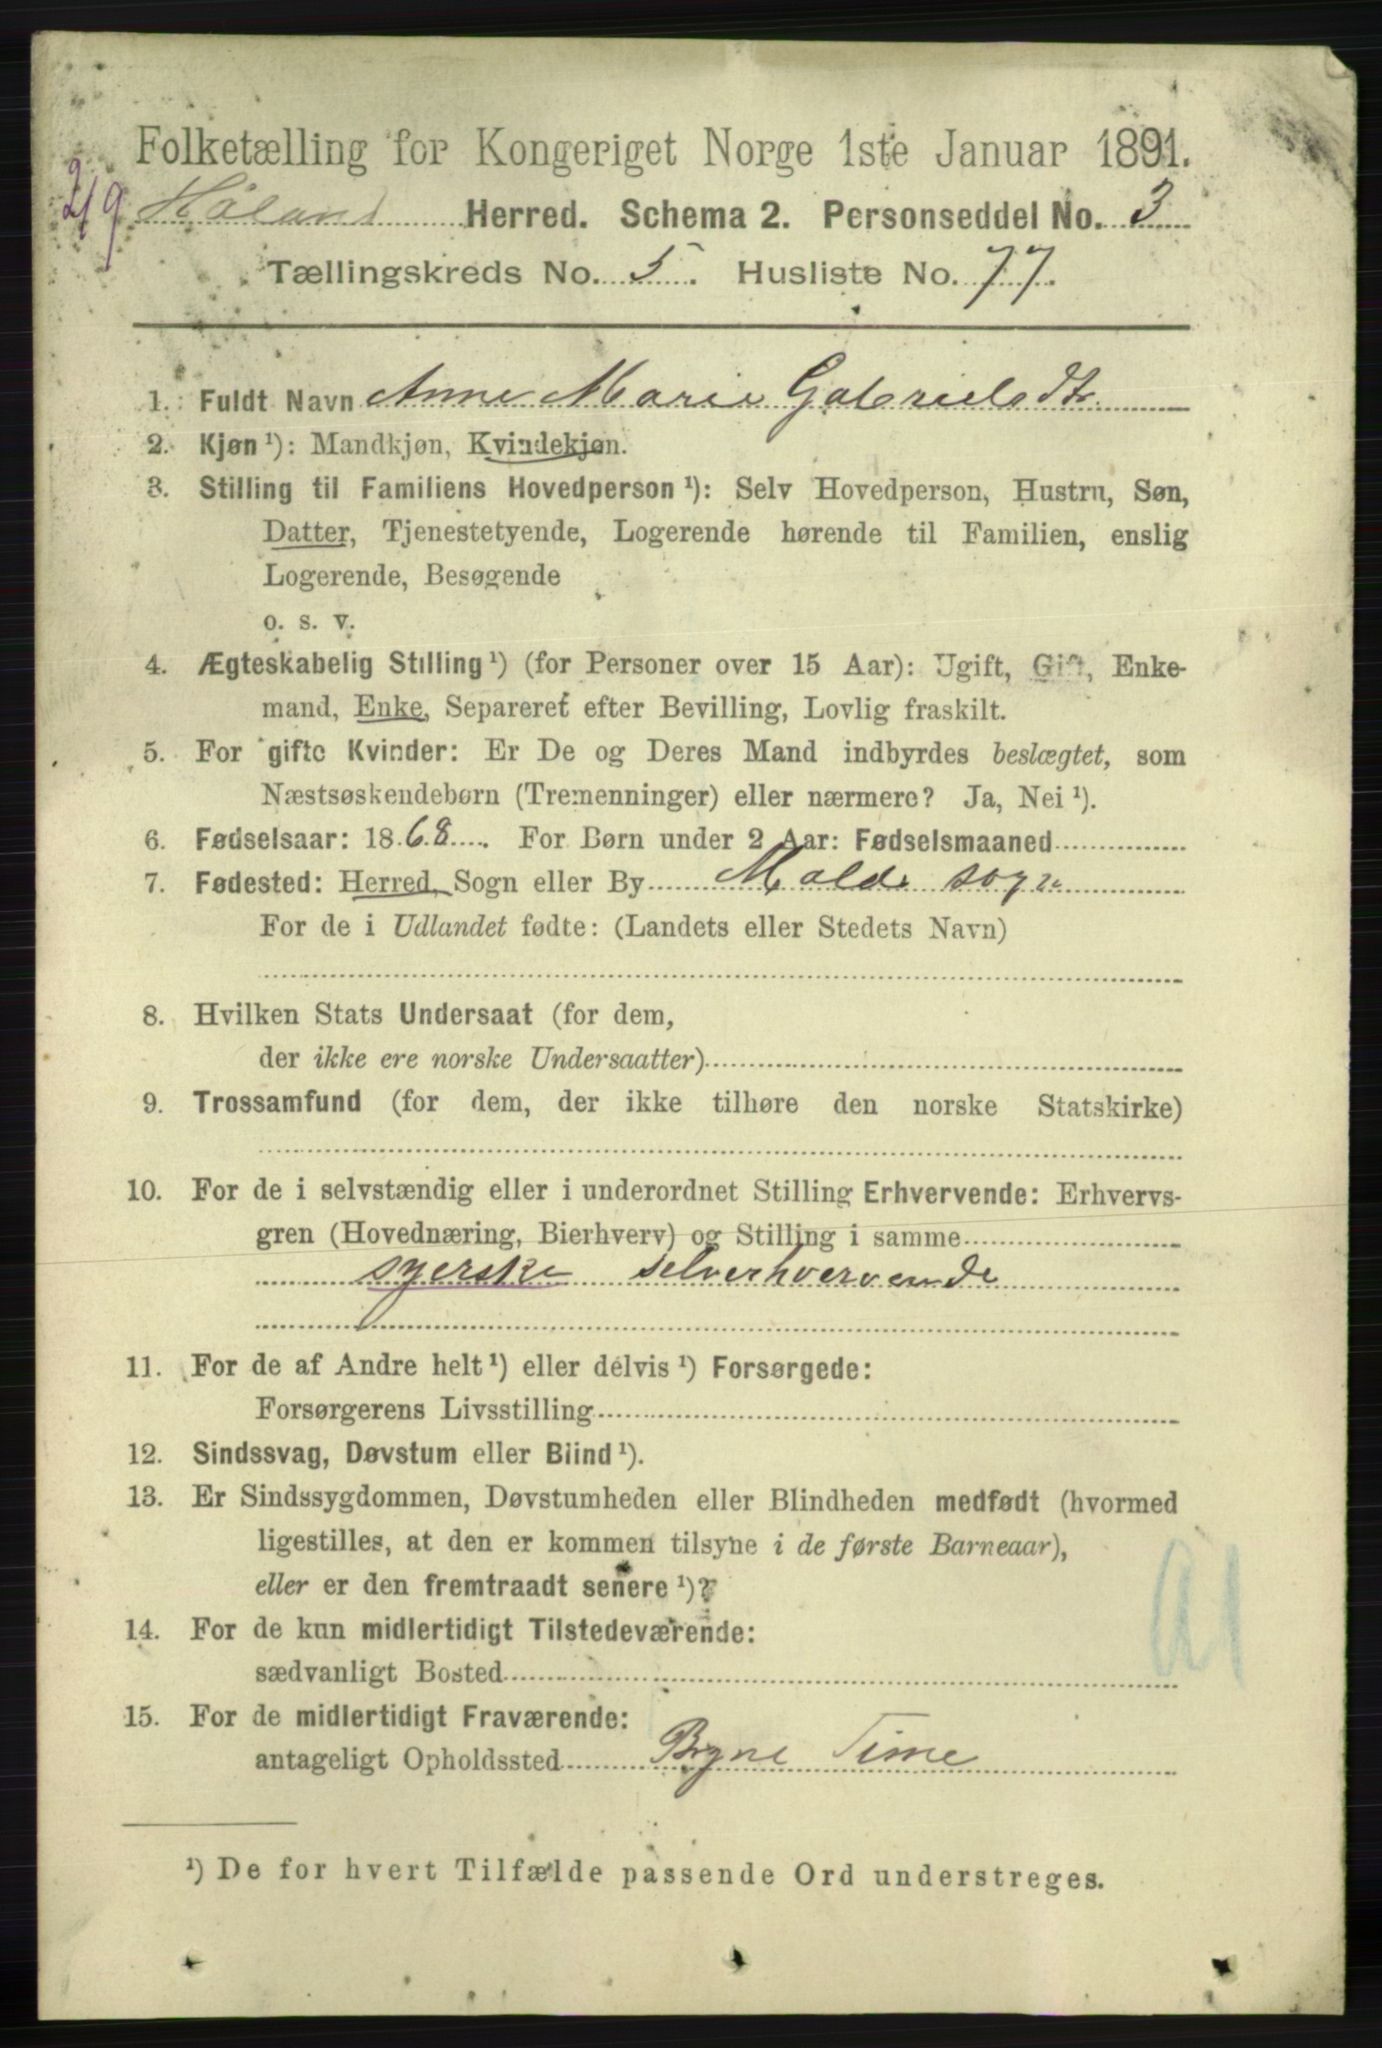 Folketælling for Kongeriget Norge 1ste Januar 1891.
219 Håland Herred. Schema 2. Personseddel No. 3
Tællingskreds No. 5. Husliste No. 77.
1. Fuldt Navn Anne Marie Gabrielsdtr.
2. Kjøn ¹): Mandkjøn, Kvindekjøn.
3. Stilling til Familiens Hovedperson ¹): Selv Hovedperson, Hustru, Søn,
Datter, Tjenestetyende, Logerende hørende til Familien, enslig
Logerende, Besøgende
o. s. v.
4. Ægteskabelig Stilling ¹) (for Personer over 15 Aar): Ugift, Gift, Enke-
mand, Enke, Separeret efter Bevilling, Lovlig fraskilt.
5. For gifte Kvinder: Er De og Deres Mand indbyrdes beslægtet, som
Næstsøskendebørn (Tremenninger) eller nærmere? Ja, Nei ¹).
6. Fødselsaar: 1868. For Børn under 2 Aar: Fødselsmaaned
7. Fødested: Herred, Sogn eller By Molde sogn
For de i Udlandet fødte: (Landets eller Stedets Navn)
8. Hvilken Stats Undersaat (for dem,
der ikke ere norske Undersaatter)
9. Trossamfund (for dem, der ikke tilhøre den norske Statskirke)
10. For de i selvstændig eller i underordnet Stilling Erhvervende: Erhvervs-
gren (Hovednæring, Bierhverv) og Stilling i samme
syerske selverhvervende
11. For de af Andre helt ¹) eller delvis ¹) Forsørgede:
Forsørgerens Livsstilling
12. Sindssvag, Døvstum eller Blind ¹).
13. Er Sindssygdommen, Døvstumheden eller Blindheden medfødt (hvormed
ligestilles, at den er kommen tilsyne i de første Barneaar),
eller er den fremtraadt senere ¹)?
14. For de kun midlertidigt Tilstedeværende:
sædvanligt Bosted
15. For de midlertidigt Fraværende:
antageligt Opholdssted Bryne Time
¹) De for hvert Tilfælde passende Ord understreges.